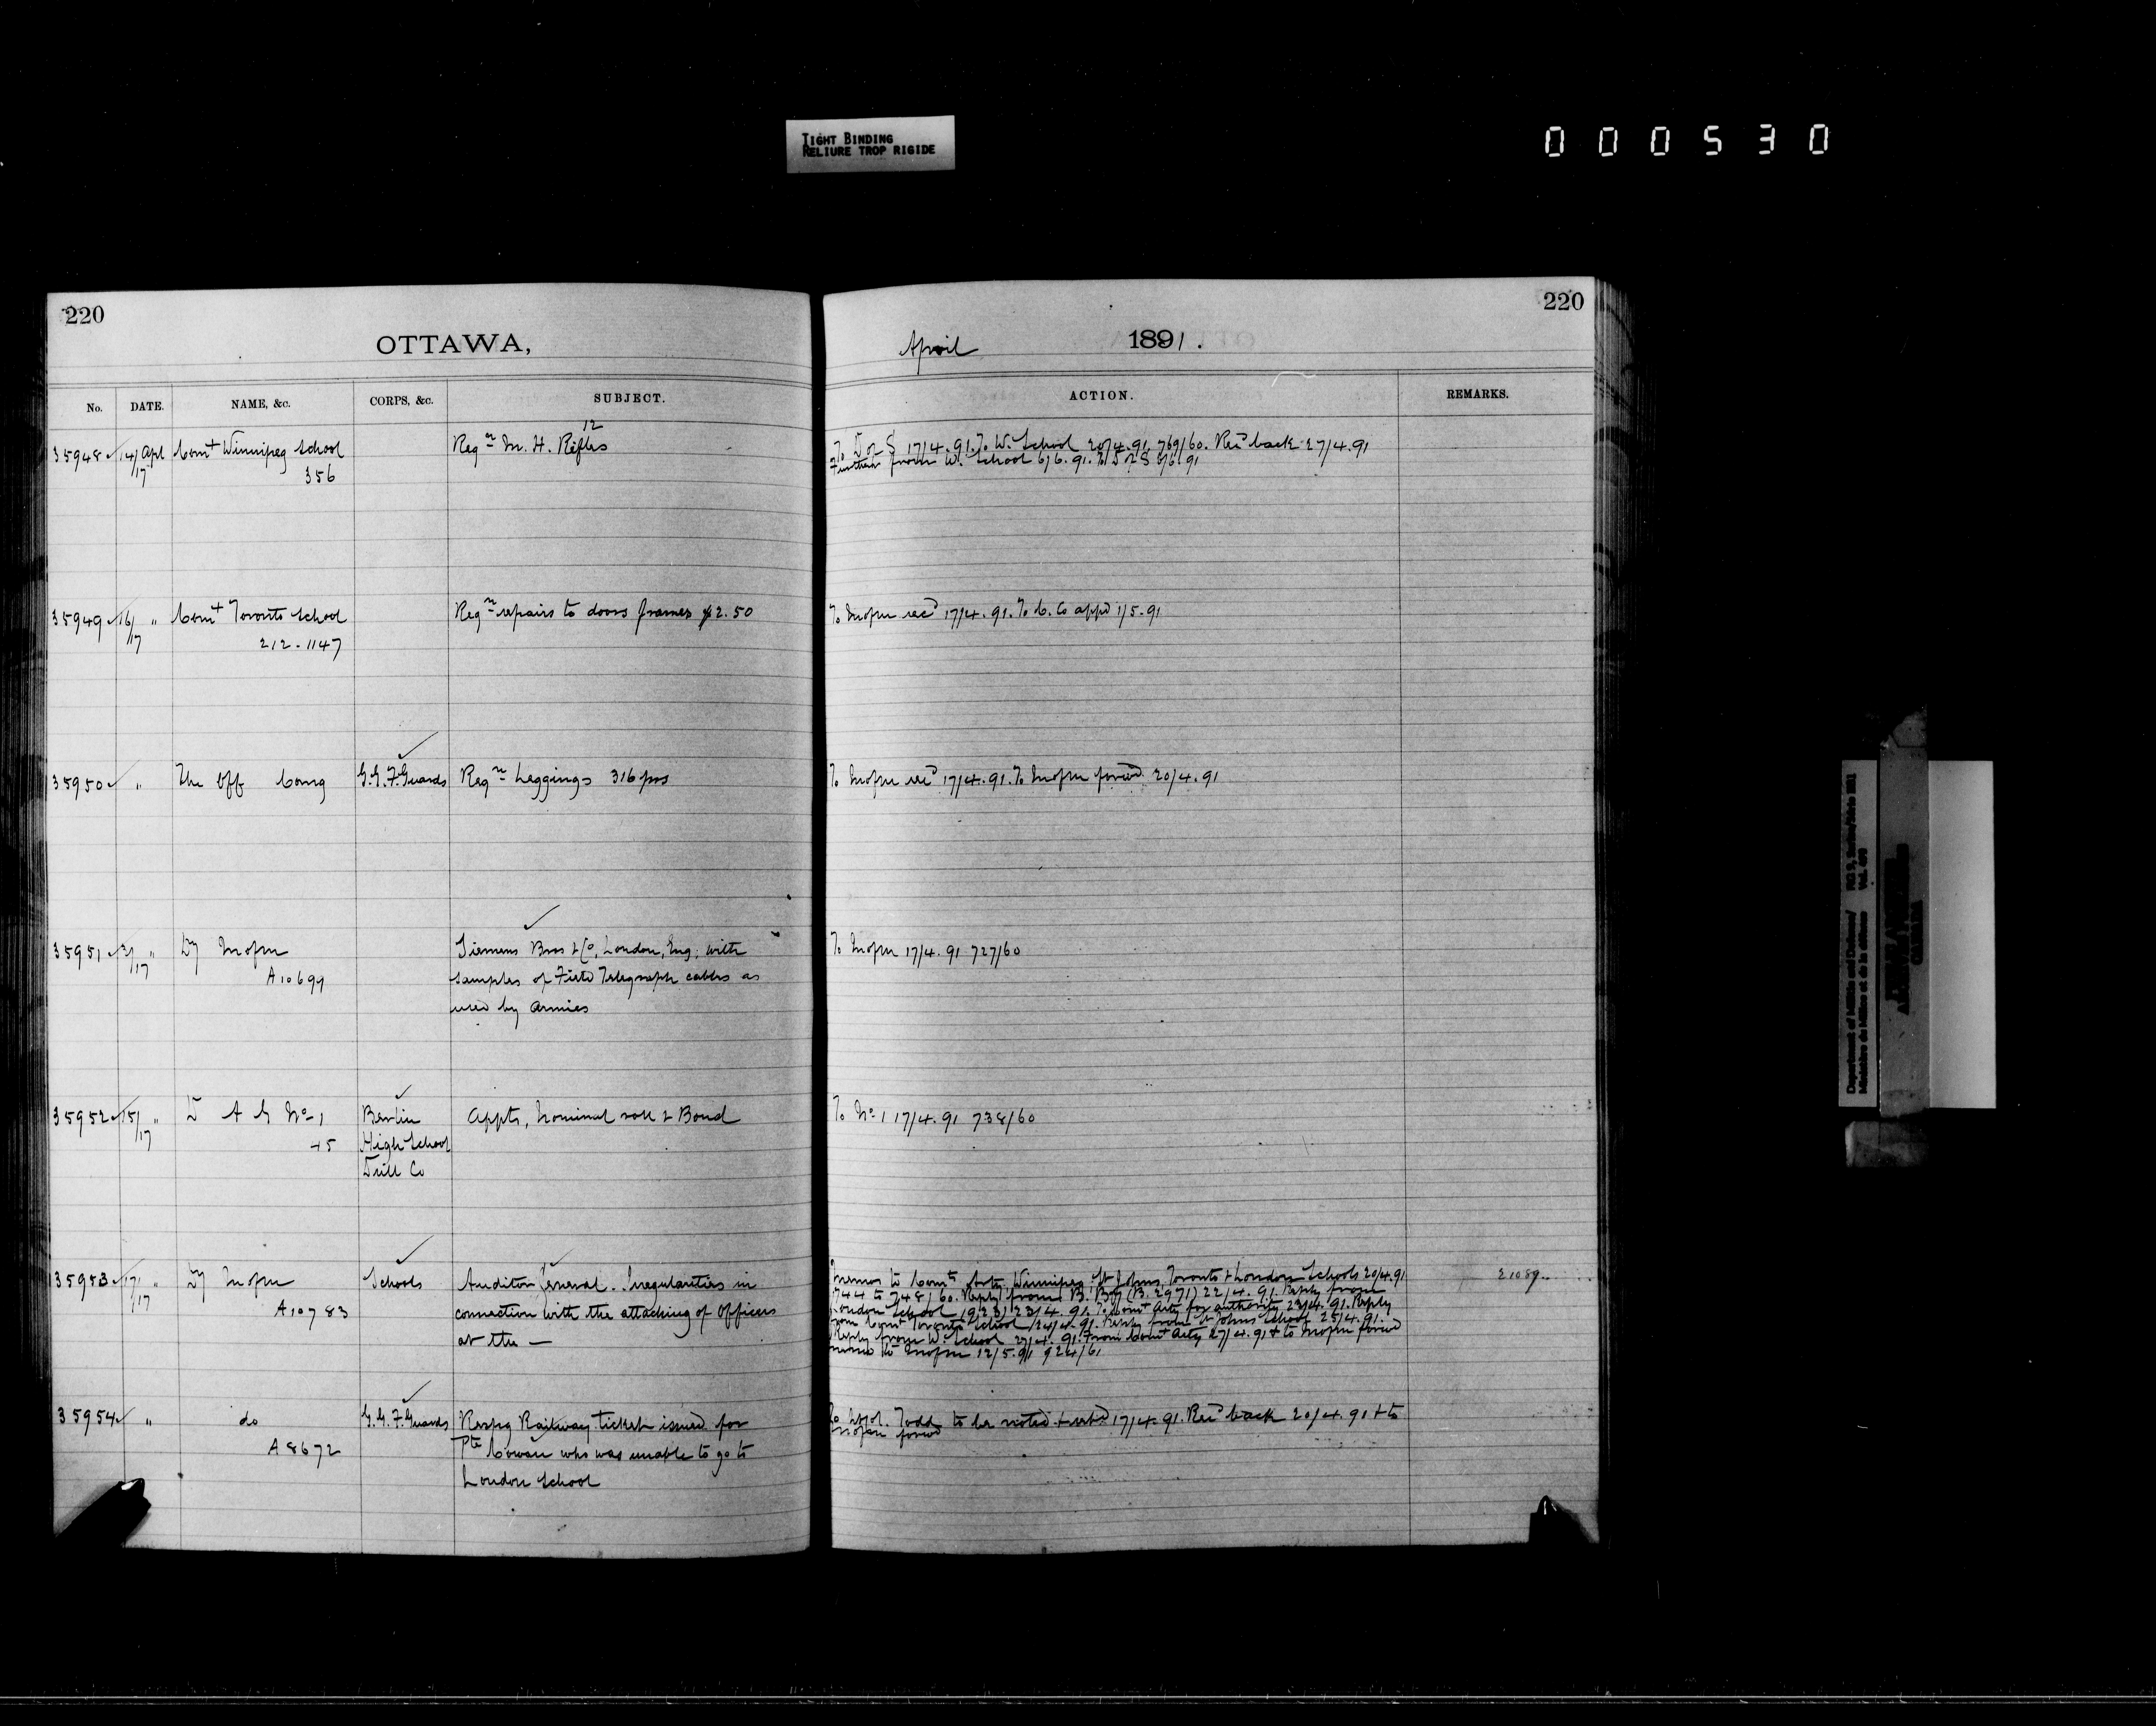 TIGHT BINDING
RELIURE TROP RIGIDE
000530
220
OTTAWA,
No. DATE. NAME, &c. CORPS, &c. SUBJECT.
35948 14/17 Apl Comt Winnipeg School Reqn 12 M. H. Rifles
356
35949 16/17 " Comt Toronto School Reqn repairs to doors frames $2.50
212-1147
35950 " The Off Comg G.G.F.Guards Reqn Leggings 316 prs
35951 3/17 " Dy Siemens Bros & Co, London, Eng; with
A10699 samples of Field Telegraph cables as
used by Armies
35952 15/17 " D A G No 1 Berlin Appts, Nominal roll & Bond
45 High School
Drill Co
35953 17/17 " Dy Schools Auditor General. Irregularities in
A10783 connection with the attaching of Officers
at the —
35954 " do G.G.F.Guards Respg Railway ticket issued for
A8672 Pte Cowan who was unable to go to
London School
220
April 1891.
ACTION. REMARKS.
To D of S 17/4.91. To W. School 20/4.91 769/60. Recd back 27/4.91
Further from W. School 6/6.91. To D of S 8/6.91
To recd 17/4.91. To appd 1/5.91
To recd 17/4.91. To forwd 20/4.91
To 17/4.91 727/60
To No 1 17/4.91 738/60
Memos to Comts Arty Winnipeg St Johns, Toronto & London Schools 20/4.91 21089
744 to 748/60. Reply from B. Bty (B. 2971) 22/4.91. Reply from
London School (923) 23/4.91. To Comt Arty for authority 23/4.91. Reply
from Comt Toronto School 24/4.91. Reply from St Johns School 25/4.91.
Reply from W. School 27/4.91. From Comt Arty 27/4.91 & to forwd
memo to 12/5.91 924/61
Todd to be noted & retd 17/4.91. Recd back 20/4.91 & to
forwd
Department of Militia and Defence/
Ministère de la Milice et de la défense